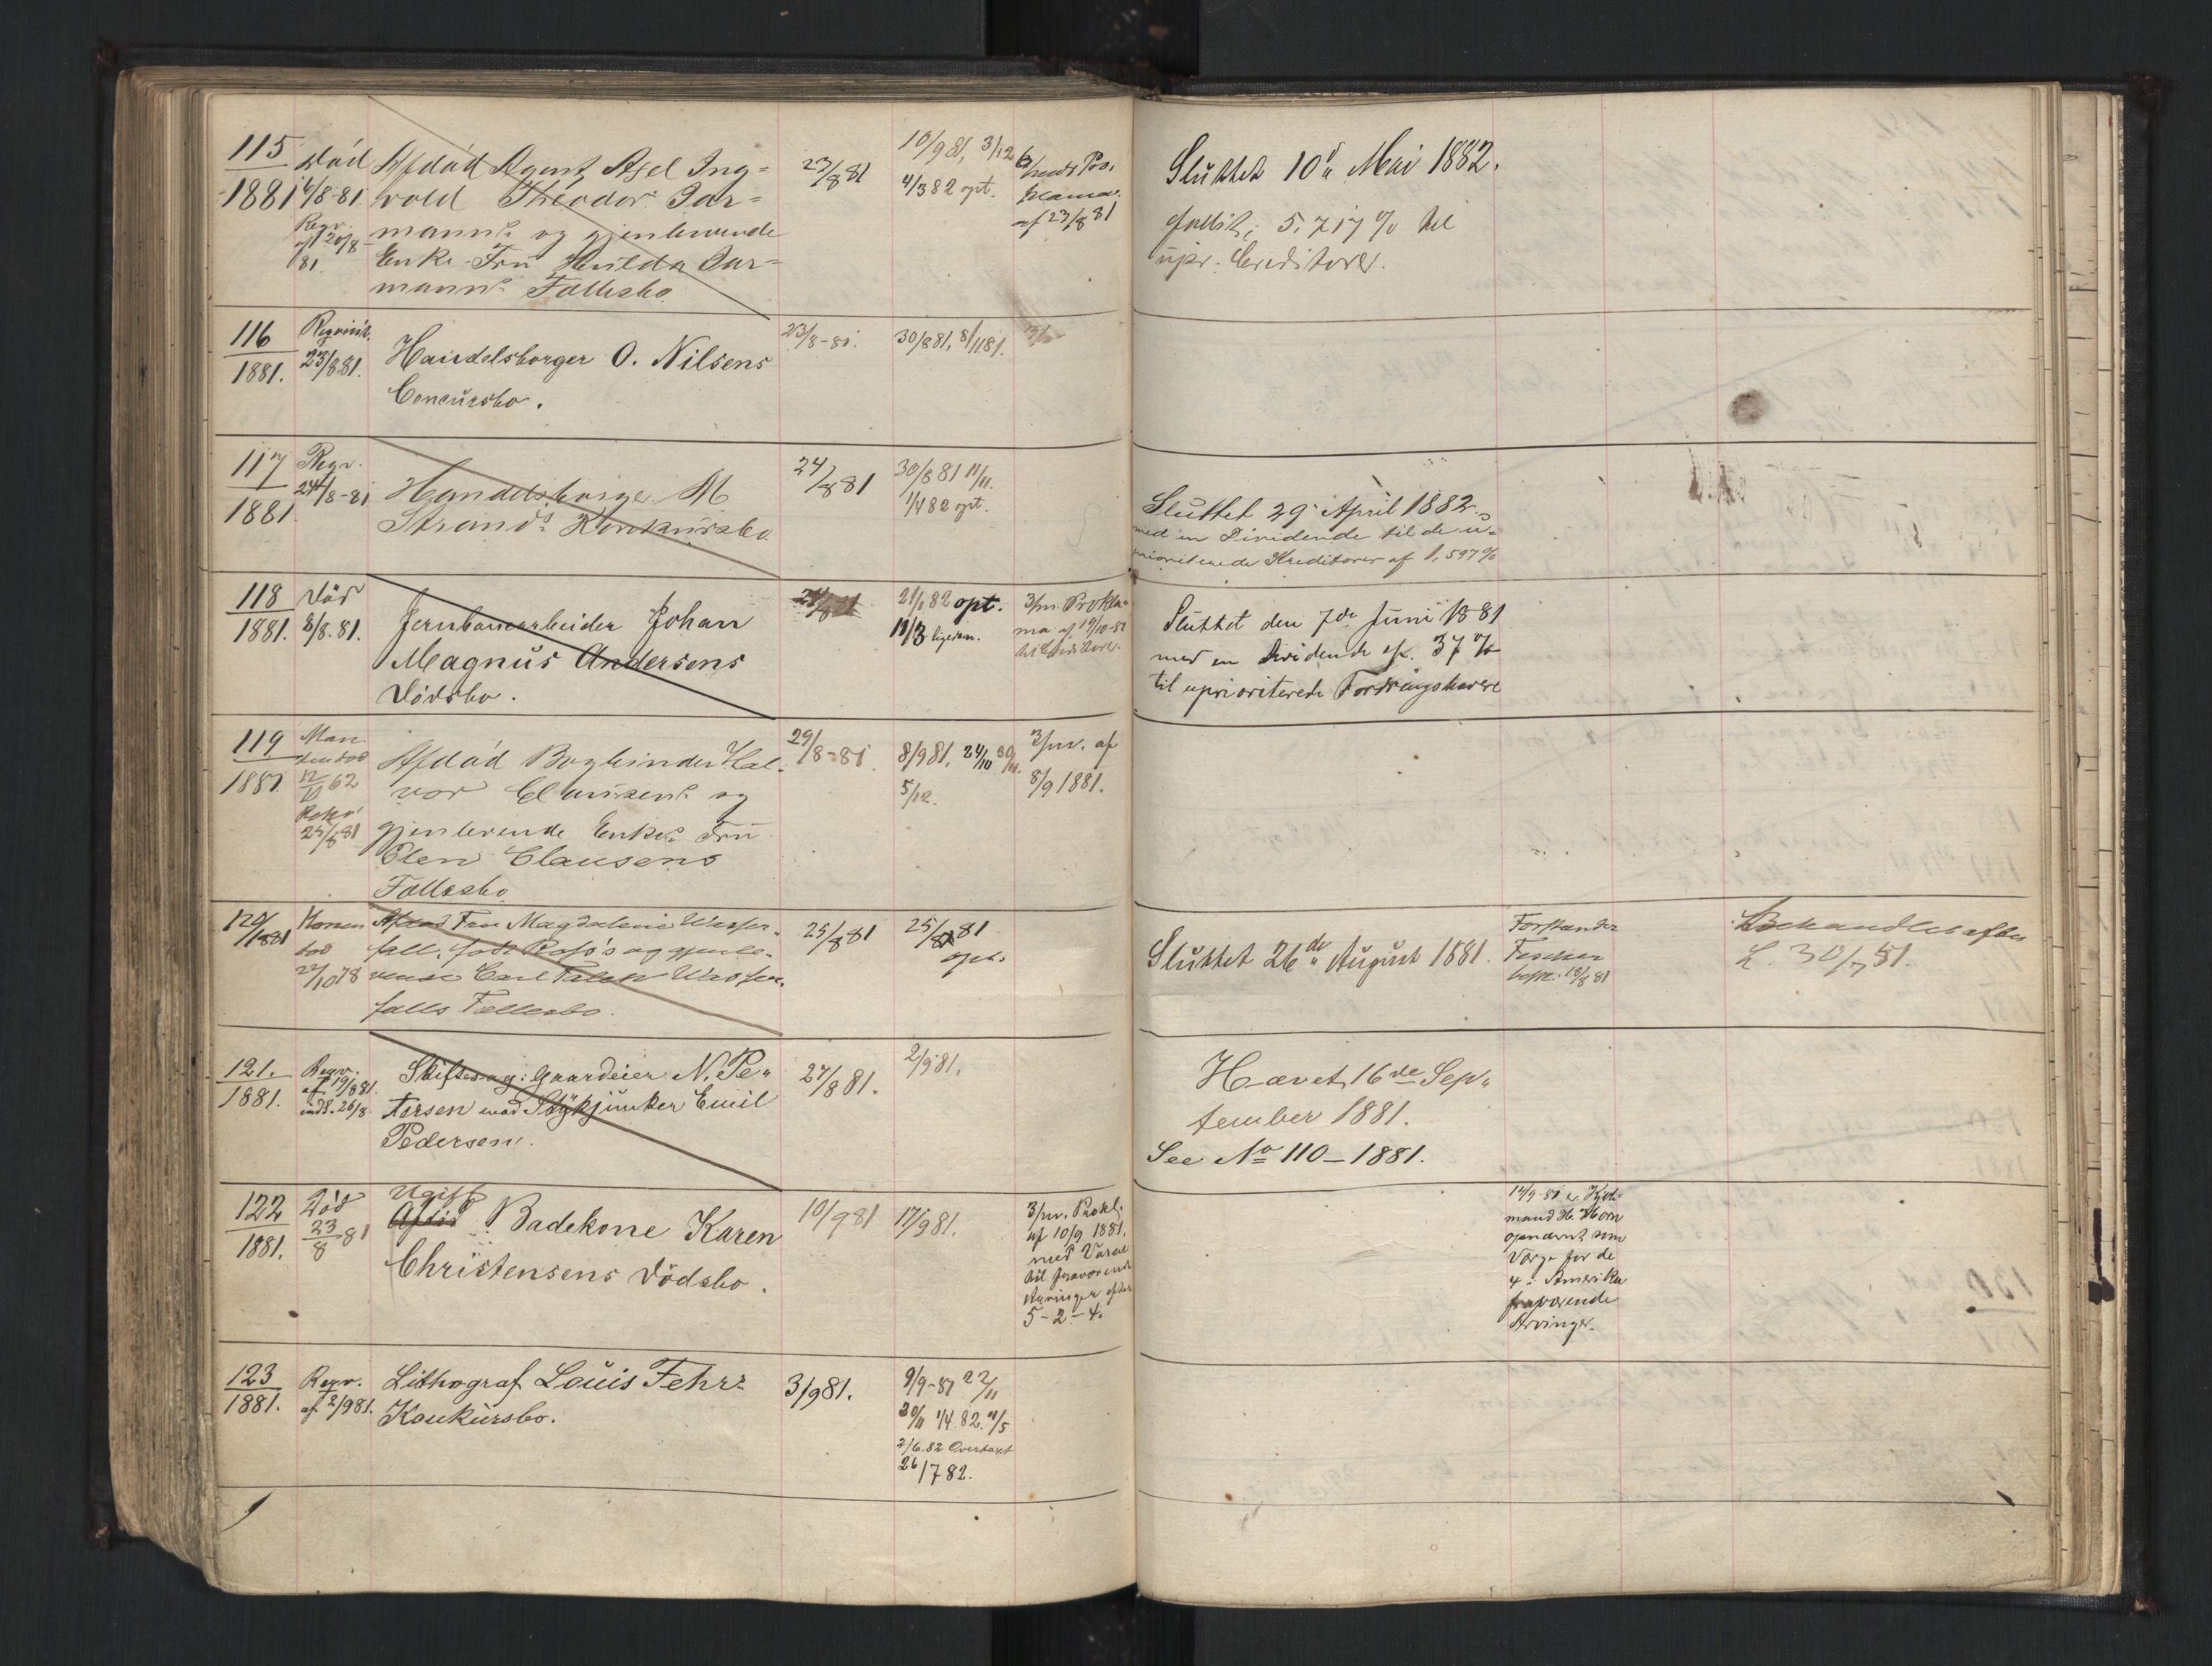 115
1881
död
4/8-81
Reqv.
af 20/8-
81
Afdöd Agent Axel Ing=
vold Theodor Jar=
manns og gjenlevende
Enke Fru Hulda Jar=
manns Fællesbo
23/8 81
10/9 81, 3/12
4/3 82 opt.
6/mds Pro.
klama
af 23/8 81
Sluttet 10d Mai 1882.
fallit; 5,717 % til
upr. Creditorer.
116
1881.
Reqvisit.
23/8.81.
Handelsborger O. Nilsens
Concursbo.
23/8-81.
30/8 81, 8/11 81.
117
1881
Reqv.
24/8-81
Handelsborger M
Strands Konkursbo
24/8 81
30/8 81 11/11.
1/4 82 opt.
Sluttet 29 April 1882
med en Dividende til de u-
prioriterede Kreditorer af 1,597 %
118
1881.
Död
3/8.81.
Jernbanearbeider Johan
Magnus Andersens
Dödsbo.
24/8 81
21/1 82 opt.
11/3 ligesaa.
3/m. Prokla-
ma af 19/10-81
til Creditorer.
Sluttet den 7de Juni 1881
med en Dividende af 37 %
til uprioriterede Fordringshavere
119
1881
Man
den död
12/10 62
Rekv
25/8 81
Afdöd Bogbinder Hal-
vor Clausens og
gjenlevende Enke Fru
Elen Clausens
Fællesbo
29/8-81.
8/9 81, 24/10 30/11.
5/12.
3/m. af
8/9 1881.
120/1881
Konen
död
22/10 78
Afdöd Fru Magdalene Wasfer-
fall, född og gjenle-
vende Carl Wasfer-
falls Fællesbo.
25/8 81
25/8 81
opt.
Sluttet 26de August 1881.
Forstander
besk. 18/8 81
Behandlet efter
L. 30/7 51.
121.
1881.
Reqv.
af 19/8 81.
indl. 26/8
Skiftesag: Gaardeier N. Pe-
tersen mod Stykjunker Emil
Pedersen.
27/8 81.
2/9 81.
Hævet 16de Sep-
tember 1881.
See No 110-1881.
122
1881.
Död
23/8 81
Ugift
Afdöd Badekone Karen
Christensens Dödsbo.
10/9 81
17/9 81.
3/m. Prokl.
af 10/9 1881.
med Varsel
til fraværende
Arvinger efter
5-2-4.
14/9-81 er Kjöb-
mand H. Horn
opnævnt som
Værge for de
4 i Amerika
fraværende
Arvinger.
123
1881.
Reqv.
af 2/9 81.
Lithograf Louis Fehr's
Konkursbo.
3/9 81.
9/9-81 22/11
30/11 1/4 82. 11/5
2/6.82 Overtaxt
26/7 82.